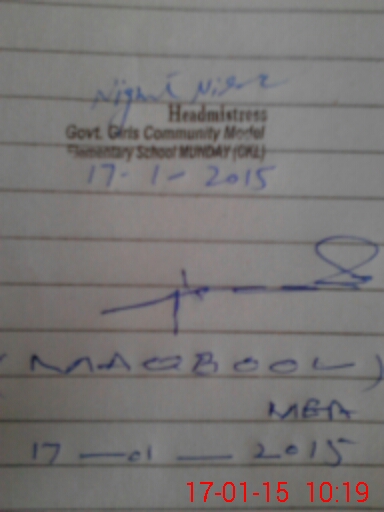 Headmistress
Govt. Girls Community Model
Elementary School MUNDAY (OKL)
17-1-2015
(MAQBOOL)
MEA
17—01—2015
17-01-15 10:19